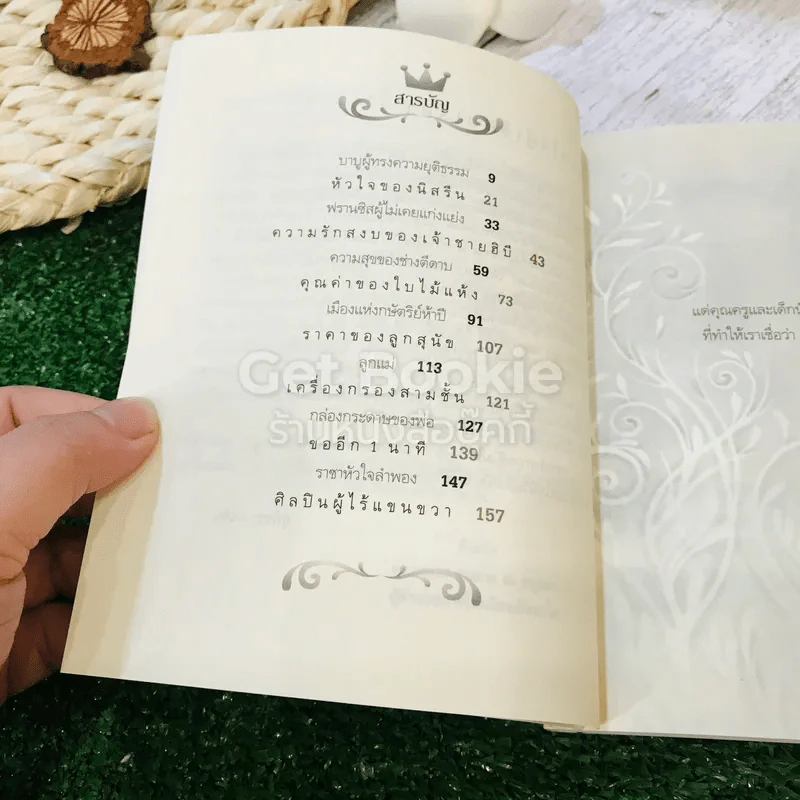 สารบัญ
บาบูผู้ทรงความยุติธรรม 9
หัวใจของนิสรีน 21
ฟรานซิสผู้ไม่เคยแก่งแย่ง 33
ความรักสงบของเจ้าชายฮิบี 43
ความสุขของช่างตีดาบ 59
คุณค่าของใบไม้แห้ง 73
เมืองแห่งกษัตริย์ห้าปี 91
ราคาของลูกสุนัข 107
ลูกแม่ 113
เครื่องกรองสามชั้น 121
กล่องกระดาษของพ่อ 127
ขออีก 1 นาที 139
ราชาหัวใจลำพอง 147
ศิลปินผู้ไร้แขนขวา 157
Get Bookie
ร้านหนังสือบุ๊คกี้
แด่คุณครูและเด็ก
ที่ทำให้เราเชื่อว่า